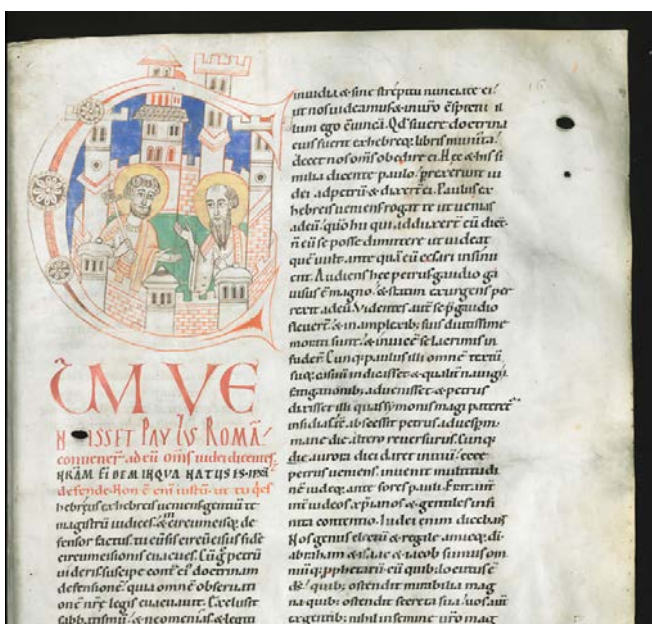 CŪM VE
NISSET PAVLVS ROMĀ
conuener̄ ad eū om̄s iudei dicentes.
NRAM FIDEM IN QVA NATVS ES IPSĀ
defende. Non ē eni iustū. ut tu qui es
hebreus ex hebreis ueniens gentiū te
magistrū iudices. & circumcisorū de
fensor factus. tu cū sis circūcisus fidē
circumcisionis euacues. Cū g̊ petrū
uideris suscipe cont̄ ei doctrinam
defensionē. quia omnē obseruati
onē nr̄e legis euacuauit. Exclusit
sabbatismū. & neomenias & legiti
inuidia & sine strepitu nunciate ei.
ut nos uideamus & in uiro
lum ego euincā. Qd si uere doctrina
eius fuerit ex hebreoꝝ libris munita
decet nos om̄s obedire ei. Hec & his si
milia dicente paulo. prexerunt iu
dei ad petrū & dixert̄ ei. Paulus ex
hebreis ueniens rogat te ut uenias
ad eū. quō hii qui adduxert̄ eū dict̄
n̄ eū se posse dimittere ut uideat
quē uult. ante quā eū cesari insinu
ent. Audiens hec petrus gaudio ga
uisus ē magno. & statim exurgens per
rexit ad eū. Videntes aut̄ se p̱ gaudio
fleuert̄. & in amplexib; suis diutissime
morati sunt. & inuicē se lacrimis in
fudert̄. Cunq; paulus illi omnē textū
suoꝝ casuū indicasset. & qualit̄ nauigii
fatigationib; aduenisset. & petrus
dixisset illi quas symonis magi pateret̄
insidias. et̄ abscessit petrus ad uesp̱m.
mane die altero reuersurus. Cunq;
die aurora diei daret initiū. ecce
petrus ueniens. inuenit multitudi
nē iudeoꝝ ante fores pauli. Erat aut̄
int̄ iudeos xp̄ianos & gentiles infi
nita contentio. Iudei enim dicebant
Nos genus electū & regale amicoꝝ di
abraham & isaac & iacob sumus & om
niū pphetarū cū quib; locutus ē
ds̄. quib; ostendit mirabilia mag
na. quib; ostendit secreta sua. uos aut̄
ex gentib; nihil in semine ur̄o mag